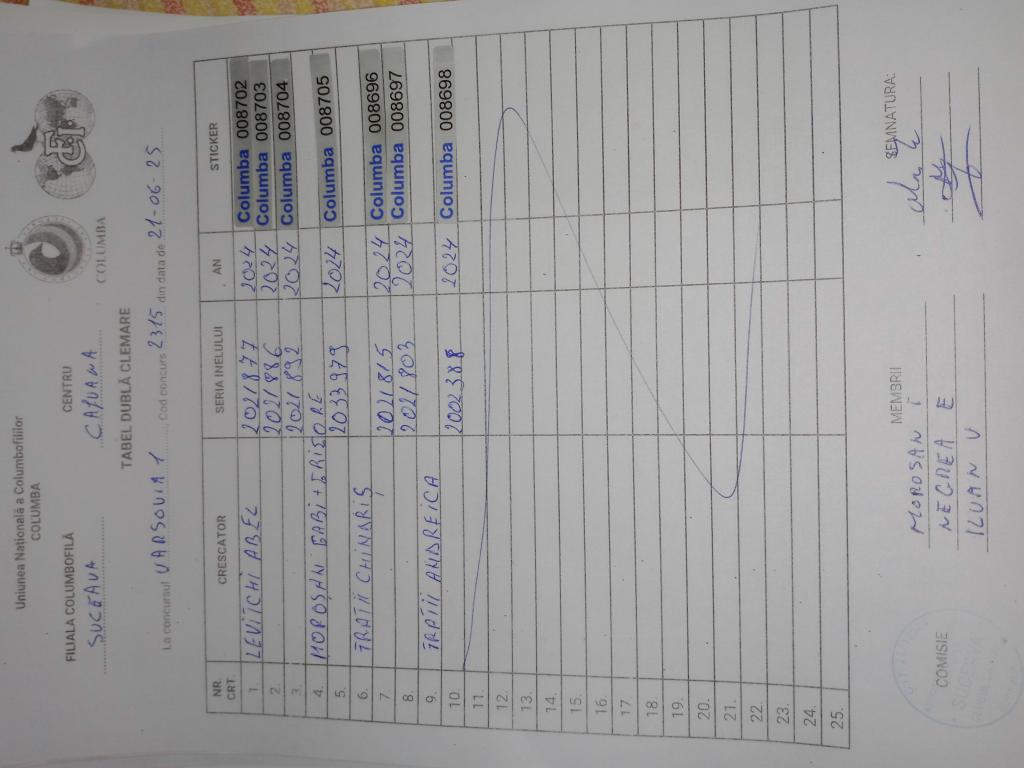 Uniunea Națională a Columbofililor
COLUMBA
COLUMBA
FILIALA COLUMBOFILĂ CENTRU
SUCEAVA CAPUANA
TABEL DUBLĂ CLEMARE
La concursul VARSOVIA 1 Cod concurs 2315 din data de 21-06-25
NR. CRT. CRESCATOR SERIA INELULUI AN STICKER
1. LEVITCHI ABEL 2021877 2024 Columba 008702
2. 2021886 2024 Columba 008703
3. 2021892 2024 Columba 008704
4. MOROȘAN GABI + GRIGORE
5. 2033979 2024 Columba 008705
6. FRATII CHINARIȘ
7. 2021815 2024 Columba 008696
8. 2021803 2024 Columba 008697
9. FRATII ANDREICA
10. 2002388 2024 Columba 008698
11.
12.
13.
14.
15.
16.
17
18.
19.
20.
21.
22.
23.
24.
25.
COMISIE MEMBRII SEMNATURA:
MOROSAN I
NEGREA E
ILUAN V
SUCEAVA